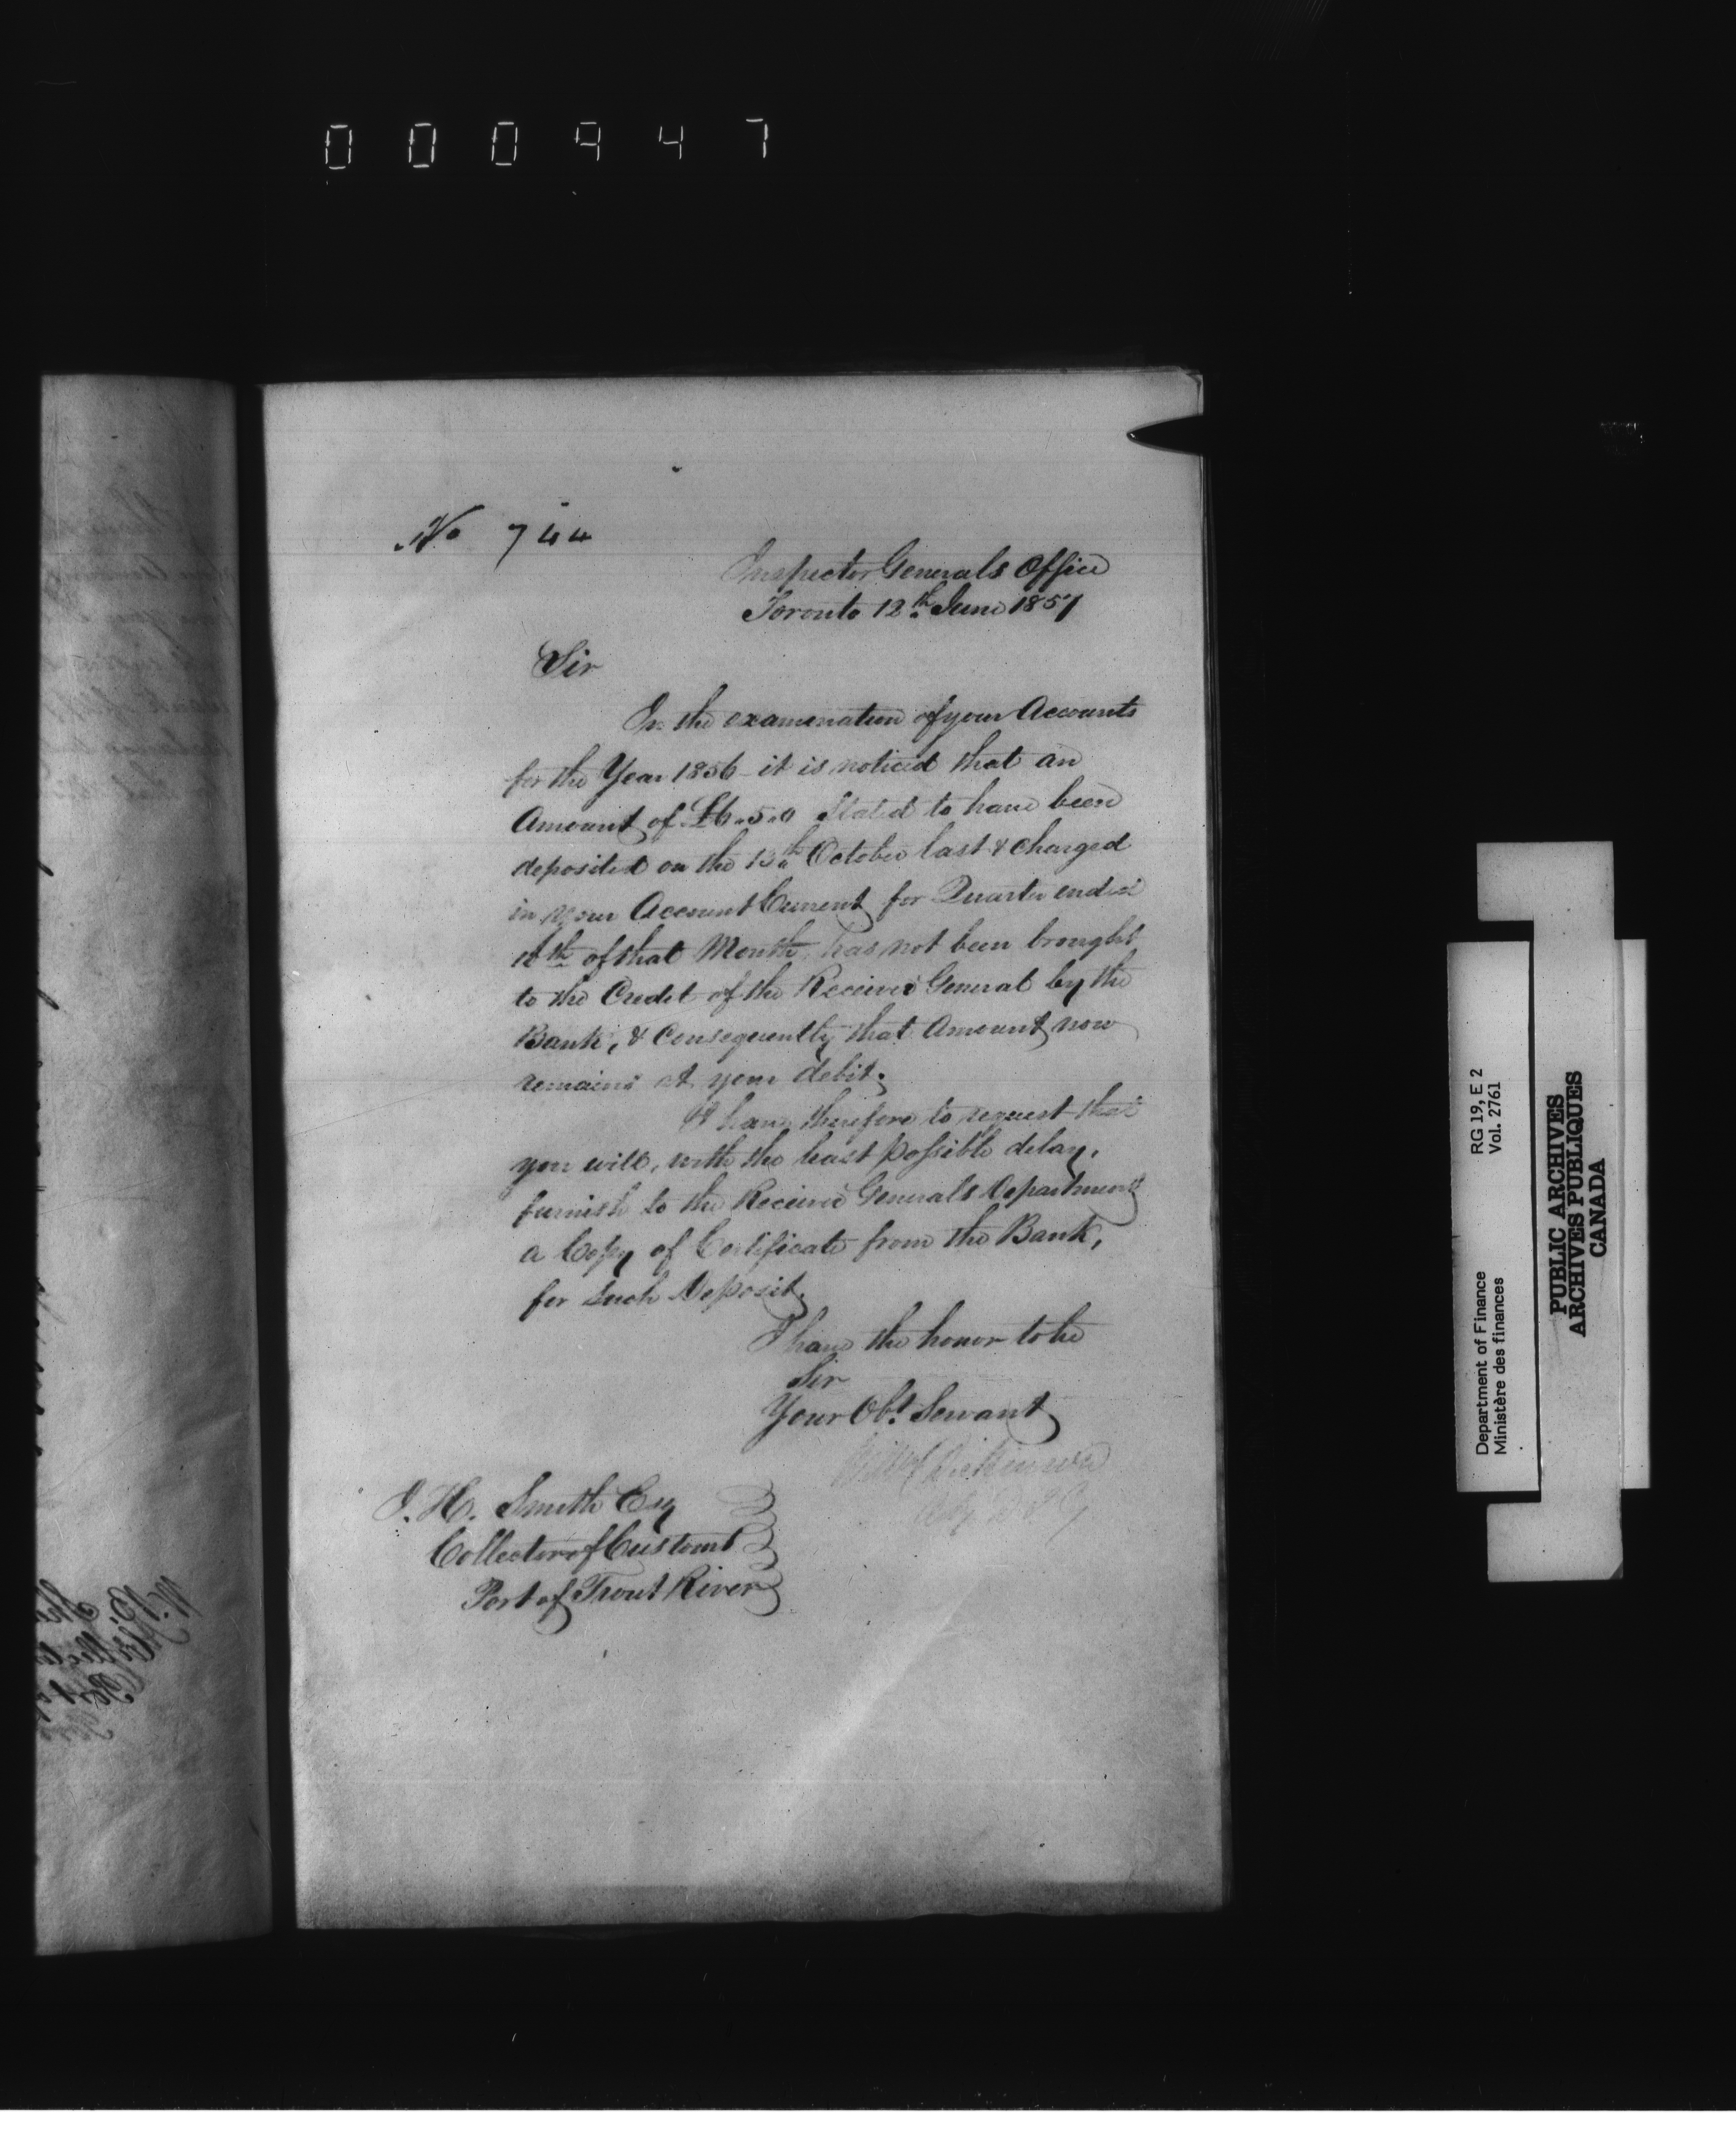 000947
No 744
Inspector Generals Office
Toronto 12th June 1857
Sir
In the examination of your Accounts
for the Year 1856 it is noticed that an
Amount of £6.5.0 Stated to have been
deposited on the 10th October last & charged
in your Account Current for Quarter ended
10th of that Month, has not been brought
to the Credit of the Receiver General by the
Bank, & Consequently that Amount now
remains at your debit.
I have therefore to request that
you will, with the least possible delay,
furnish to the Receiver Generals Department
a Copy of Certificate from the Bank,
for such Deposit.
I have the honor to be
Sir
Your Obt Servant
Wm Dickinson
J. H. Smith Esq
Collector of Customs
Port of Trout River
Department of Finance RG 19, E 2
Ministère des finances Vol. 2761
PUBLIC ARCHIVES
ARCHIVES PUBLIQUES
CANADA